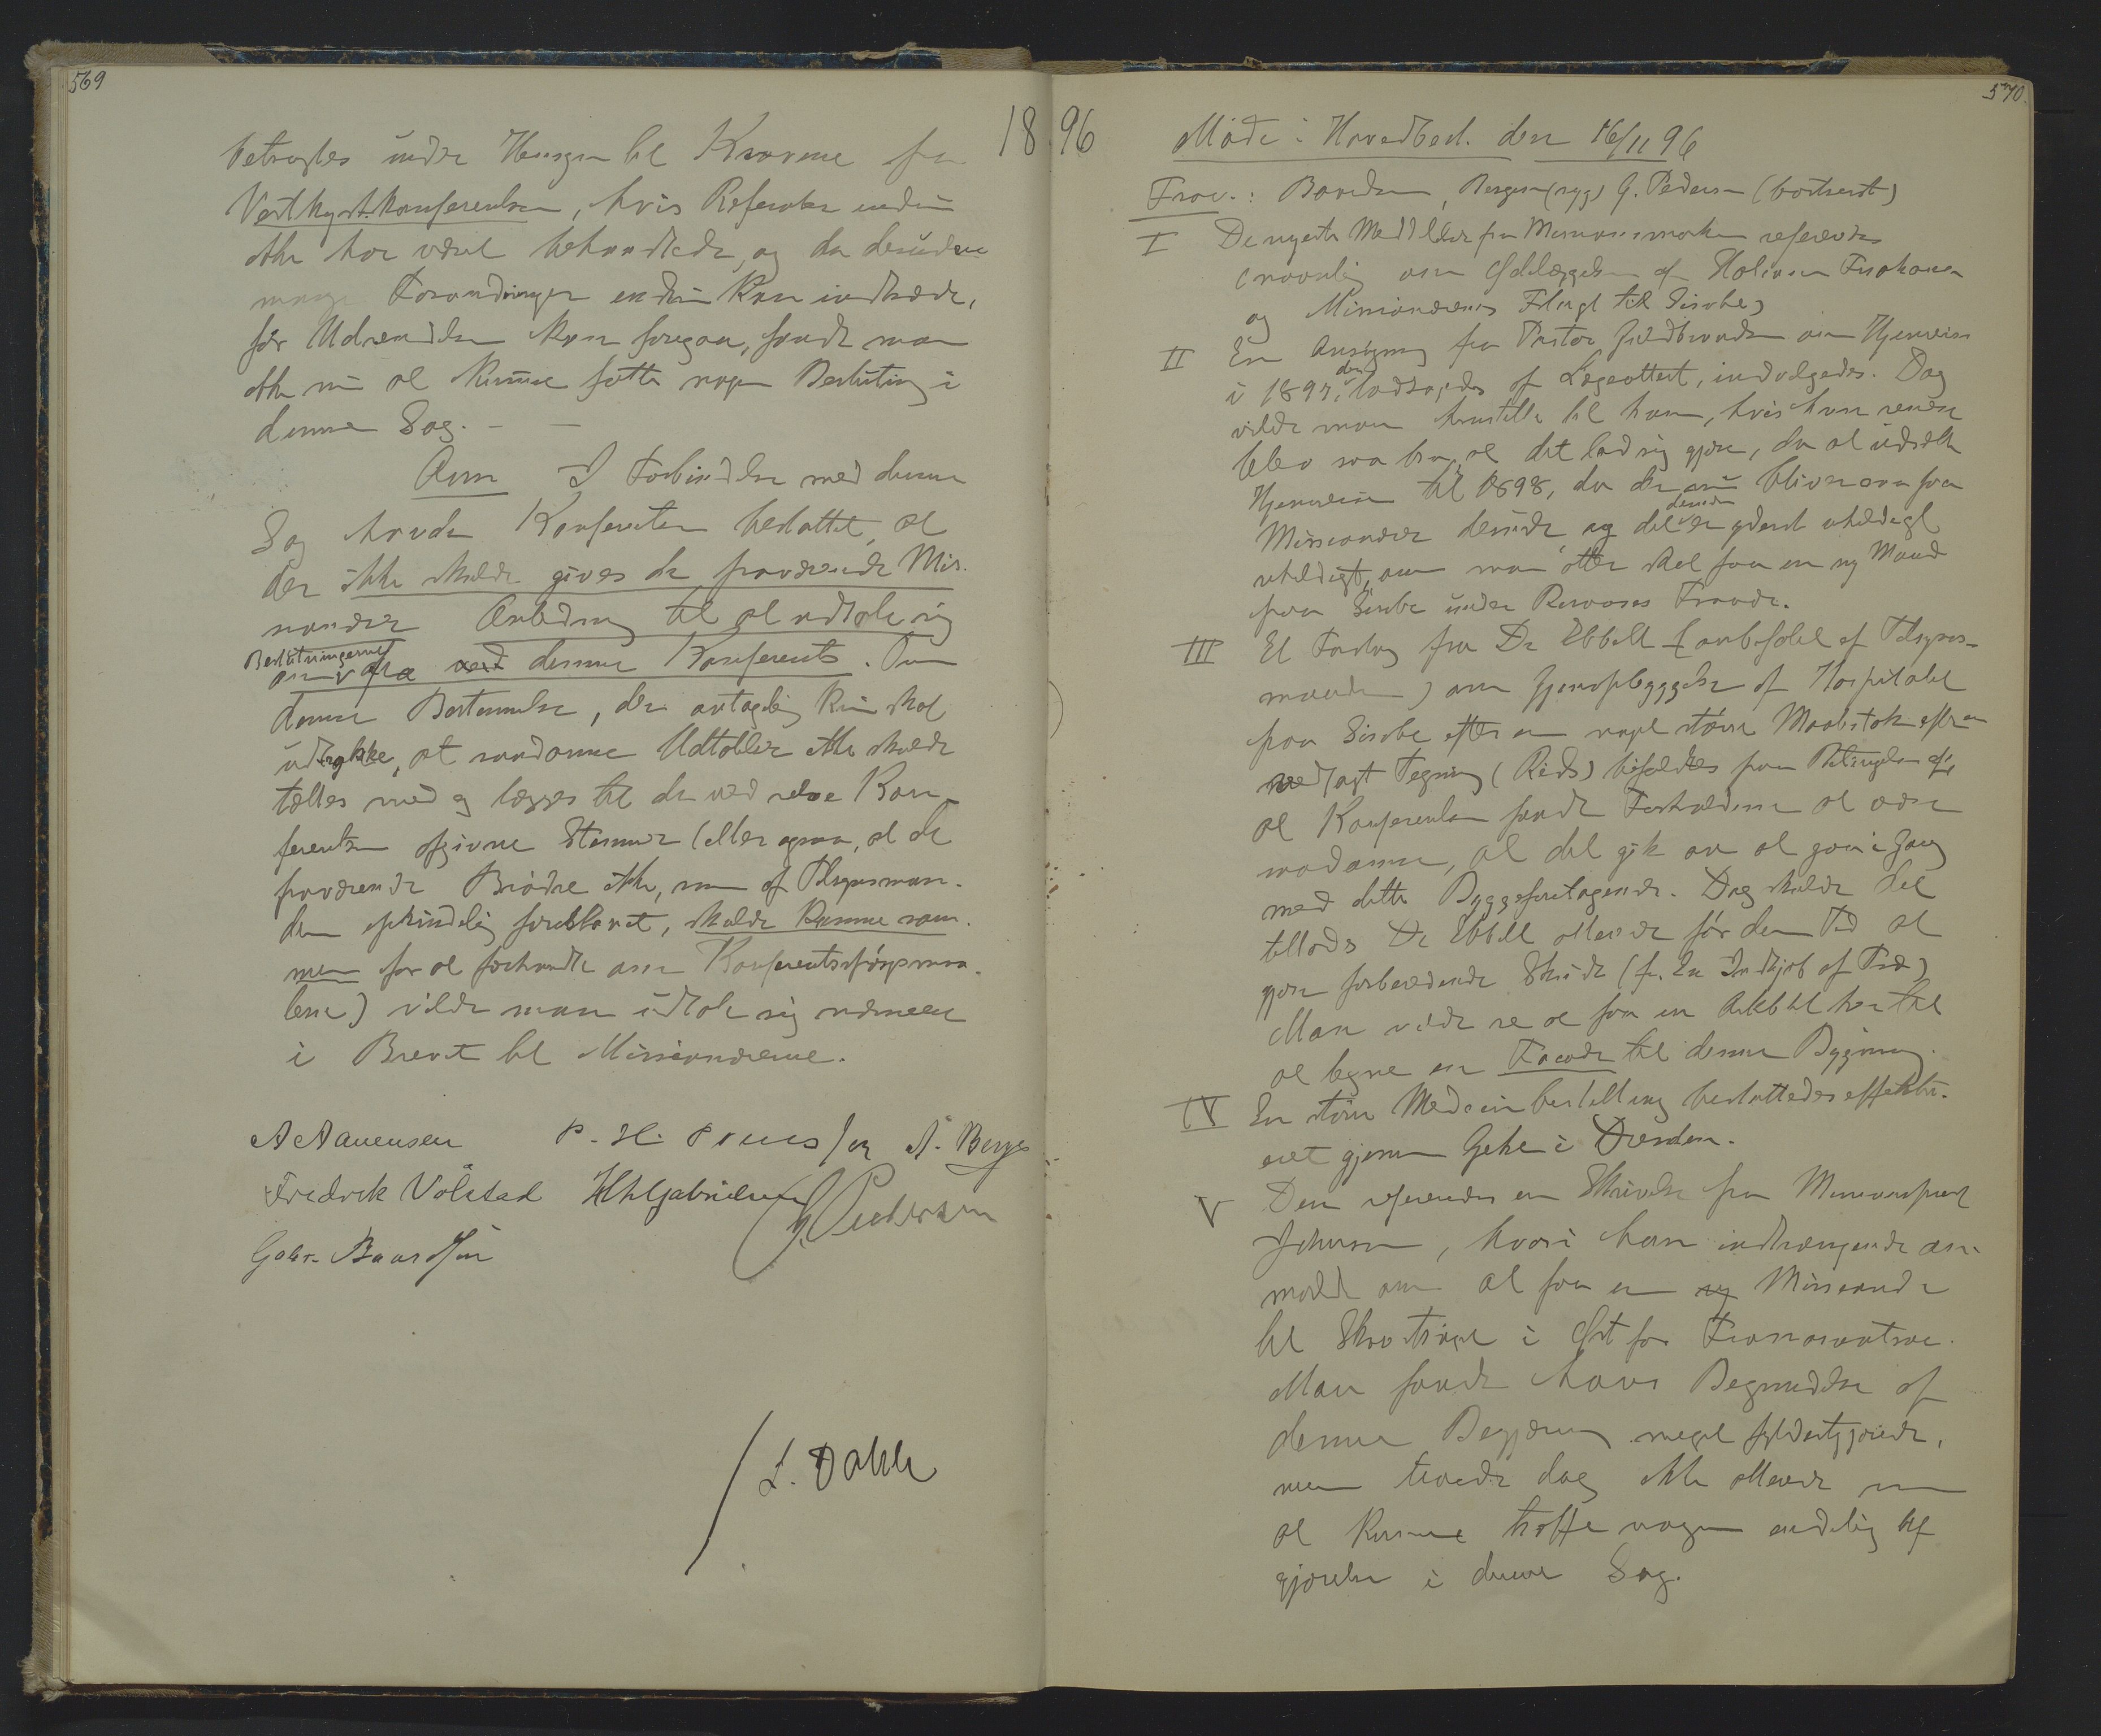 569
1896
betragtes under Hensyn til Kravene fra
Vestkyst.konferentsen, hvis Referater endnu
ikke har været behandlede, og da desuden
mange Forandringer endnu kan indtræde,
før Udsendelsen kan foregaa, fandt man
ikke nu at kunne fatte nogen Beslutning i
denne Sag. - -
Anm I Forbindelse med denne
Sag havde Konferentsen besluttet, at
der ikke skulde gives de fraværende Mis-
sionærer Anledning til at udtale sig
Beslutningerne
om fra ved denne Konferents. Om
denne Bestemmelse, der antagelig kun skal
udtrykke, at saadanne Udtalelser ikke skulde
tælles med og lægges til de ved selve Kon-
ferentsen afgivne Stemmer (eller ogsaa, at de
fraværende Brødre ikke, som af Tilsynsman-
den oprindelig foreslaaet, skulde komme sam-
men for at forhandle om Konferentsspørgsmaa-
lene) vilde man udtale sig nærmere
i Brevet til Missionærerne.
A Aanensen S. Berge
Fredrek Vølstad HChGabrielsen
G. Pedersen
Gabr. Baardsen
L. Dahle
570
Møde i Hovedbest. den 16/11 96
Frav.: Baardsen, Berge (syg) G. Pedersen (bortreist)
I De nyeste Meddelelser fra Missionsmarken refereredes
(navnlig om Ødelæggelsen af
og Missionærernes Flugt til Sirabe)
II En Ansøgning fra Pastor om Hjemreise
i 1897, der ledsagedes af Lægeattest, indvilgedes. Dog
vilde man henstille til ham, hvis han senere
blev saa bra, at det lod sig gjøre, da at udsætte
Hjemreisen til 1898, da der nu bliver saa faa
desuden
Missionærer derude, og det er yderst uheldigt
uheldigt, om man atter skal faa en ny Mand
paa Sirabe under Fravær.
III Et Forslag fra Dr Ebbell (anbefalet af Tilsyns-
manden) om Gjenopbyggelse af Hospitalet
paa Sirabe efter en noget større Maalestok efter en
vedlagt Tegning (Rids) bifaldtes paa Betingelse af,
at Konferentsen fandt Forholdene at være
saadanne, at det gik an at gaa i Gang
med dette Byggeforetagende. Dog skulde det
tillades Dr Ebbell allerede før den Tid at
gjøre forberedende Skridt (f. Ex Indkjøb af Træ)
Man vilde se at faa en Arkitekt her til
at tegne en Facade til denne Bygning.
IV En større Medicinbestilling besluttedes effektu-
eret gjennem Gehe i Dresden.
V Der refereredes en Skrivelse fra Missionsprest
Johnson, hvori han indtrængende an-
modede om at faa en ny Missionær
til i Øst for Fianarantsoa.
Man fandt hans Begrundelse af
denne Begjæring meget fyldestgjørende,
men troede dog ikke allerede nu
at kunne træffe nogen endelig Af
gjørelse i denne Sag.